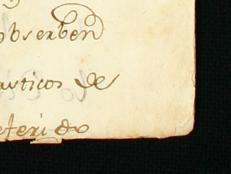 obserben
asticos de
eferido